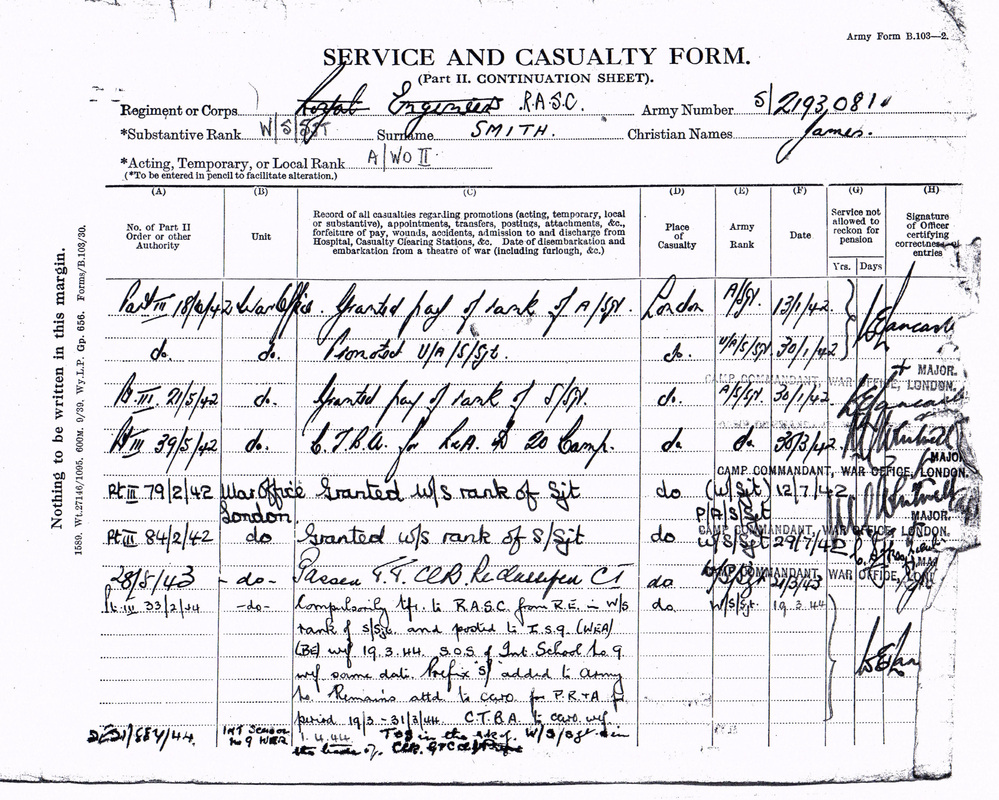 Army Form B.103—2.
SERVICE AND CASUALTY FORM.
(Part II. CONTINUATION SHEET).
Regiment or Corps Royal Engineers R.A.S.C. Army Number S/2193081
*Substantive Rank W/S/Sjt Surname SMITH. Christian Names James.
*Acting, Temporary, or Local Rank A/WO II
(*To be entered in pencil to facilitate alteration.)
(A) (B) (C) (D) (E) (F) (G) (H)
No. of Part II Order or other Authority
Unit
Record of all casualties regarding promotions (acting, temporary, local
or substantive), appointments, transfers, postings, attachments, &c.,
forfeiture of pay, wounds, accidents, admission to and discharge from
Hospital, Casualty Clearing Stations, &c. Date of disembarkation and
embarkation from a theatre of war (including furlough, &c.)
Place of Casualty
Army Rank
Date
Service not allowed to reckon for pension
Yrs. Days
Signature of Officer certifying correctness of entries
Nothing to be written in this margin.
1589. Wt.27146/1095. 600M. 9/39. Wy.L.P. Gp. 656. Forms/B.103/30.
Part III 18/4/42 War Office Granted pay of rank of A/Sjt. London A/Sjt. 13/1/42
do. do. Promoted U/A/S/Sjt. do. U/A/S/Sjt 30/1/42
MAJOR.
CAMP COMMANDANT, WAR OFFICE, LONDON.
Pt III. 21/5/42 do. Granted pay of rank of S/Sjt do. A/S/Sjt. 30/1/42
Pt III 39/5/42 do. C.T.B.A. for R.&A. 20 Camp. do. do. 30/3/42
MAJOR
CAMP COMMANDANT, WAR OFFICE, LONDON.
Pt III 79/2/42 War Office London Granted w/s rank of Sjt do (W/Sjt) P/A/S/Sjt 12/7/42
MAJOR.
CAMP COMMANDANT, WAR OFFICE, LONDON.
Pt III 84/2/42 do Granted w/s rank of S/Sjt do W/S/Sjt 29/7/42
CAMP COMMANDANT, WAR OFFICE, LON
28/8/43 - do - Passed T.T. Reclassified do.
Pt III 33/2/44 - do - Compulsorily tfr. to R.A.S.C. from R.E. in W/S do. W/S/Sjt. 19 3 44
rank of S/Sjt. and posted to (WEA)
(BE) wef 19.3.44. S.O.S. of Int. School No 9
wef same date. Prefix 'S/' added to Army
No. Remains attd to for P.R.+A for
period 19/3 - 31/3/44. C.T.B.A. to wef.
INT School No 9 WEA 1.4.44. TOS in the rank of W/S/Sjt in
the trade of Clk.